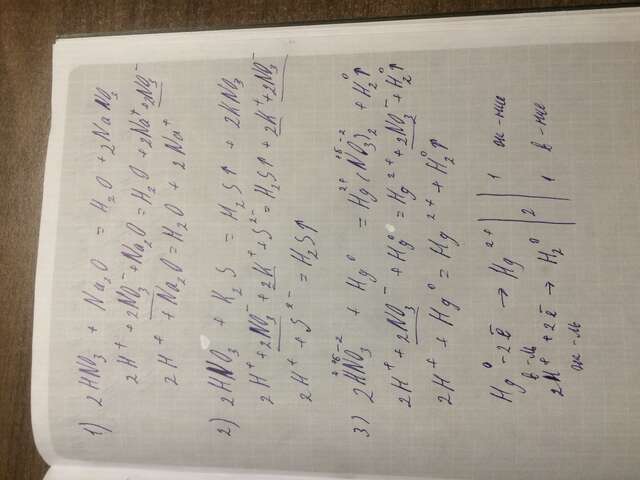 1) 2HNO₃ + Na₂O = H₂O + 2NaNO₃
2H⁺ + 2NO₃⁻ + Na₂O = H₂O + 2Na⁺ + 2NO₃⁻
2H⁺ + Na₂O = H₂O + 2Na⁺
2) 2HNO₃ + K₂S = H₂S↑ + 2KNO₃
2H⁺ + 2NO₃⁻ + 2K⁺ + S²⁻ = H₂S↑ + 2K⁺ + 2NO₃⁻
2H⁺ + S²⁻ = H₂S↑
3) 2HNO₃ + Hg⁰ = Hg(NO₃)₂ + H₂⁰↑
2H⁺ + 2NO₃⁻ + Hg⁰ = Hg²⁺ + 2NO₃⁻ + H₂⁰↑
2H⁺ + Hg⁰ = Hg²⁺ + H₂⁰↑
Hg⁰ - 2ē → Hg²⁺ | | 1 ок-ние
в-ль
2H⁺ + 2ē → H₂⁰ | 2 | 1 в-ние
ок-ль